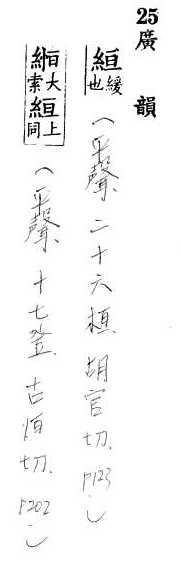 25 廣韻
絙 緩也（平聲、二十六桓 胡官切、P123）
縆 大索 絙 上同（平聲、十七登、古恒切、P202）